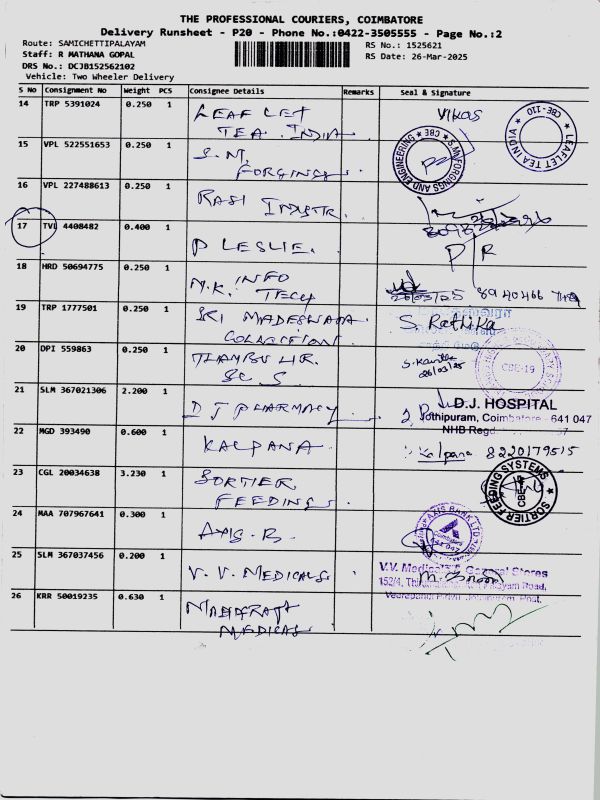 THE PROFESSIONAL COURIERS, COIMBATORE
Delivery Runsheet - P20 - Phone No.:0422-3505555 - Page No.:2
Route: SAMICHETTIPALAYAM
RS No.: 1525621
Staff: R MATHANA GOPAL
RS Date: 26-Mar-2025
DRS No.: DCJB152562102
Vehicle: Two Wheeler Delivery
S No Consignment No Weight PCS Consignee Details Remarks Seal & Signature
14 TRP 5391024 0.250 1 LEAF LET
TEA. INDIA
VIKAS
LEAFLET TEA INDIA CBE-110
15 VPL 522551653 0.250 1 S.N.
FORGINGS
S.N. FORGINGS AND ENGINEERING CBE
16 VPL 227488613 0.250 1 RASI INDUSTR.
17 TVL 4408482 0.400 1 P LESLIE.
P R
18 HRD 50694775 0.250 1 M.K. INFO
TECH
26/03/25
19 TRP 1777501 0.250 1 SRI MADESWARA
COLLECTION
S. Rathika
20 DPI 559863 0.250 1
S. Kavitha
26/03/25
CBE-19
21 SLM 367021306 2.200 1 D J PHARMACY
D.J. HOSPITAL
Jothipuram, Coimbatore - 641 047
NHB Regd
22 MGD 393490 0.600 1 KALPANA
Kalpana 8220179515
23 CGL 20034638 3.230 1 SORTIER
FEEDINGS
SORTIER FEEDING SYSTEMS
CBE
24 MAA 707967641 0.300 1 AXIS. B.
AXIS BANK LTD
25 SLM 367037456 0.200 1 V. V. MEDICALS
V.V. Medicals & General Stores
152/4, Palayam Road,
Post.
26 KRR 50019235 0.630 1
MEDICAL